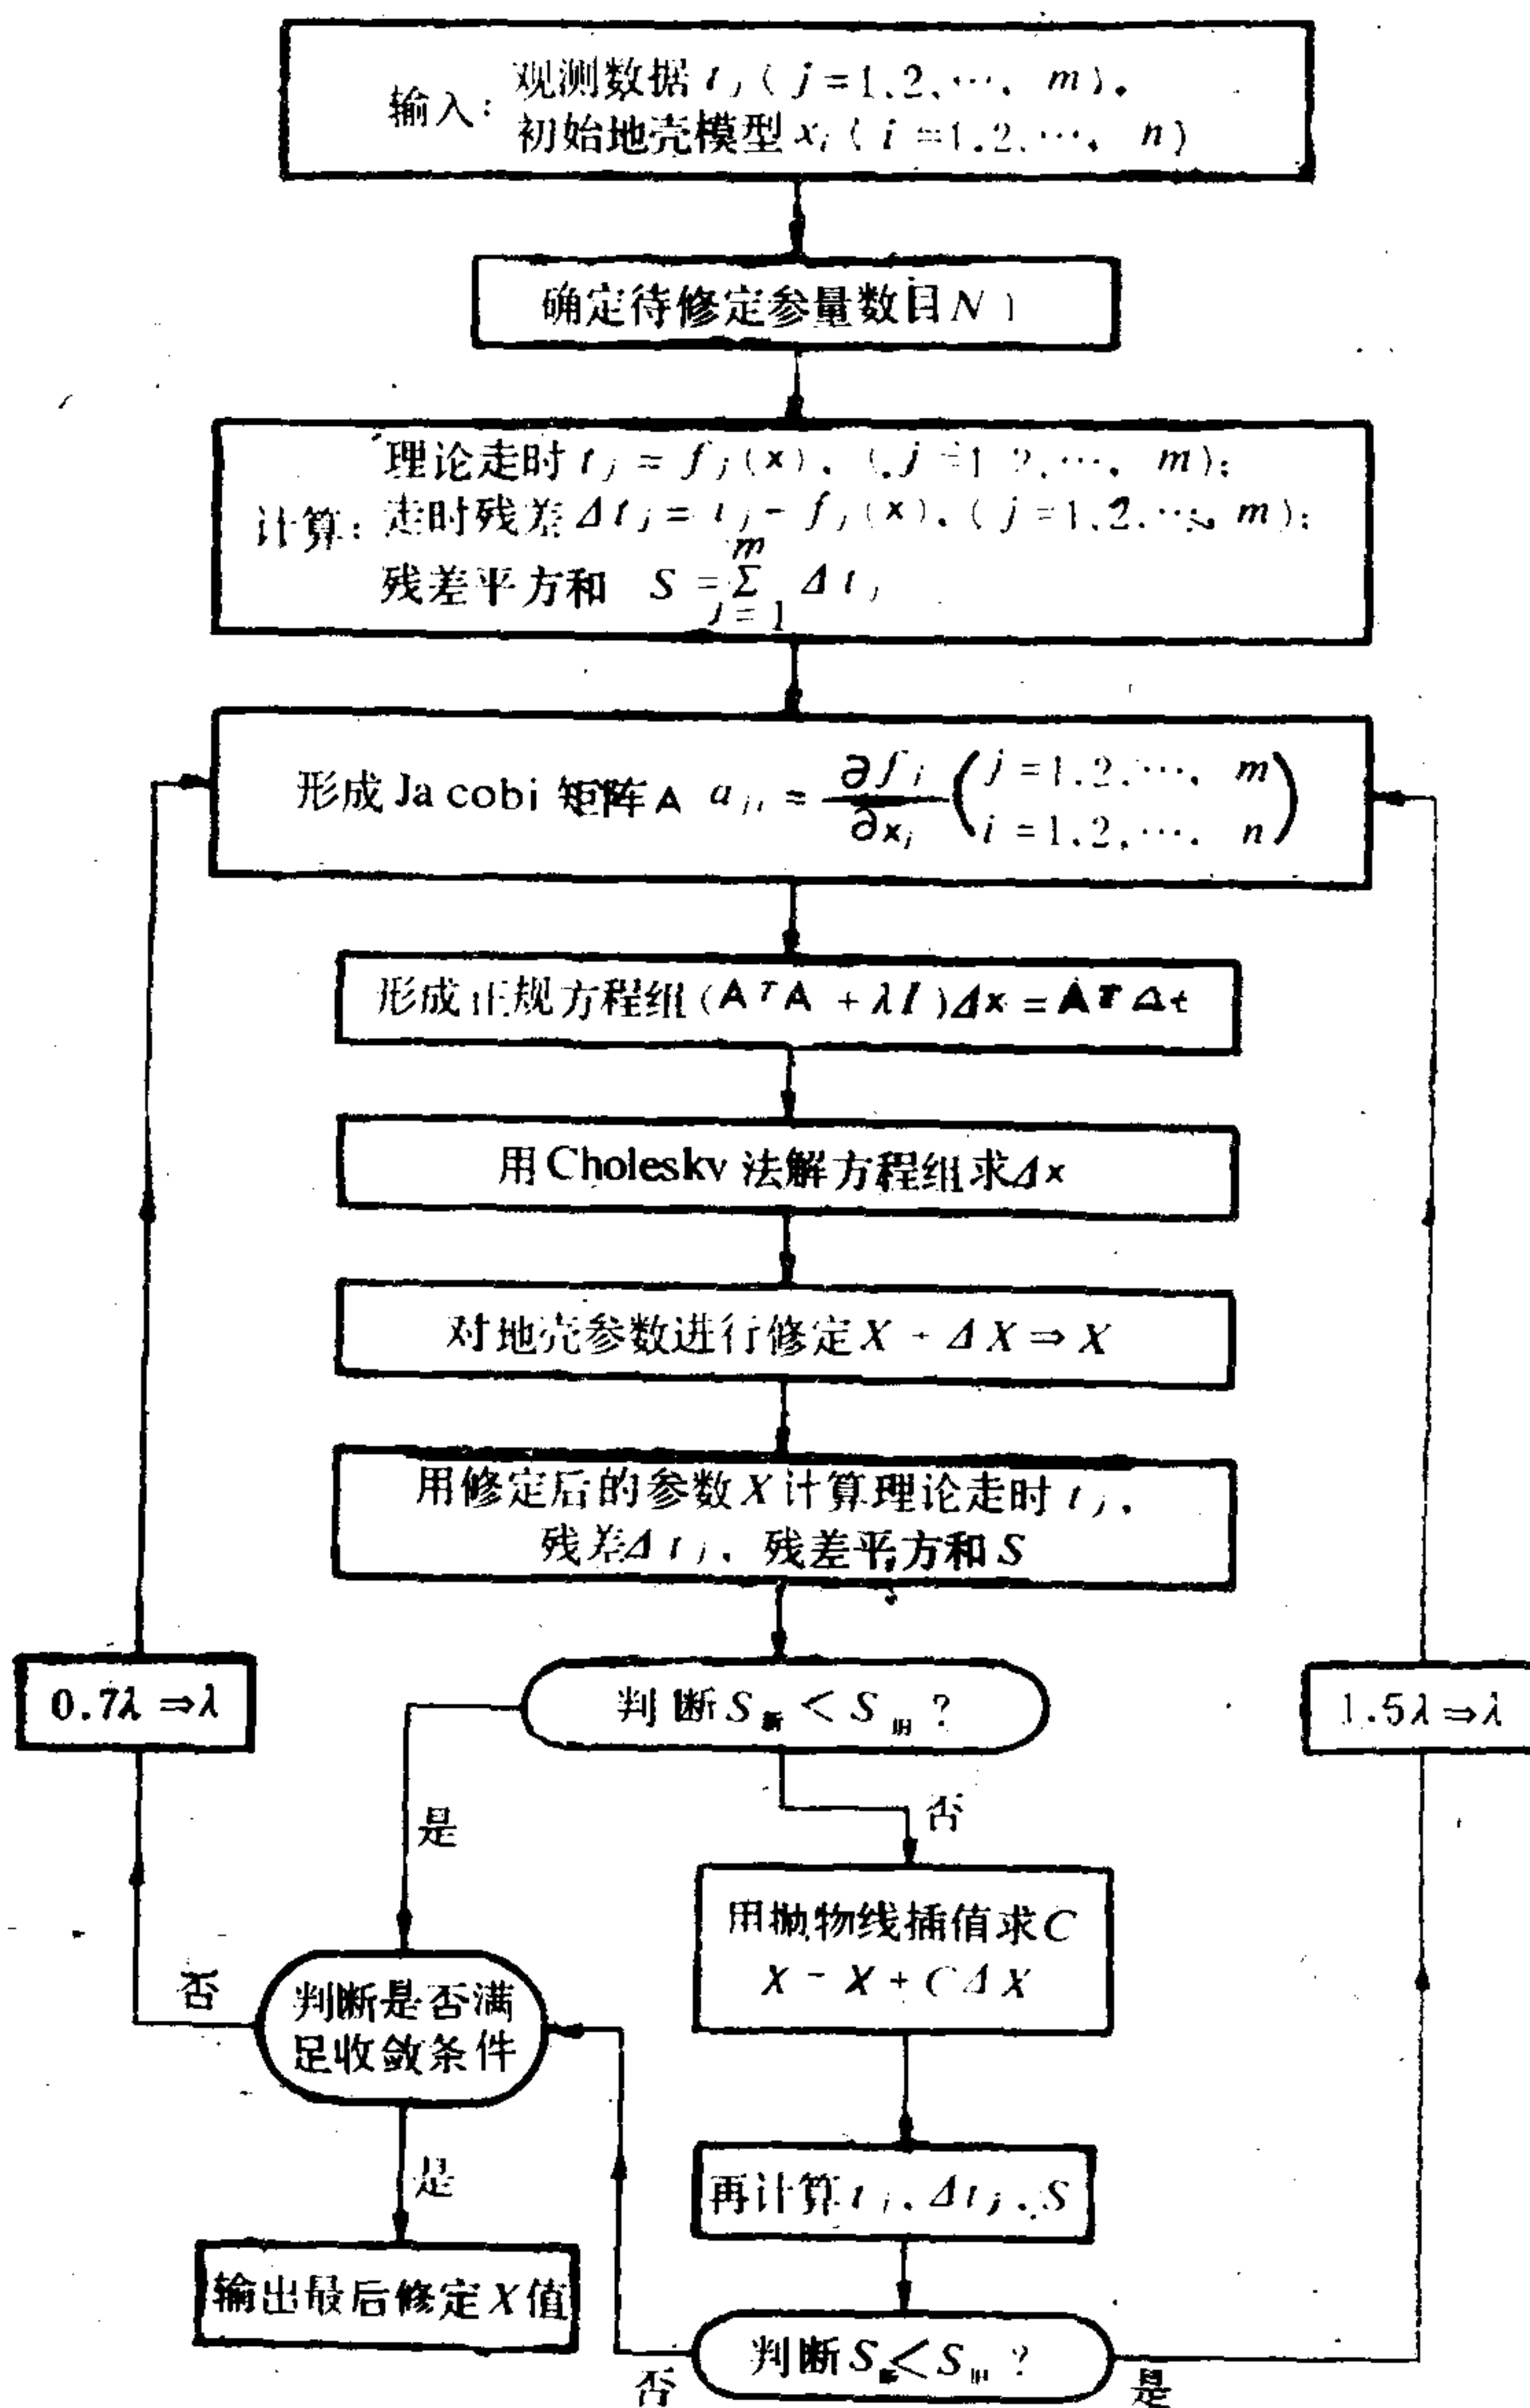 输入：
观测数据 t j ( j =1.2.…. m).
初始地壳模型 x i ( i =1.2.…. n)
确定待修定参量数目N 1
计算：
理论走时 t j = f j (x). ( j =1 2.…. m);
走时残差 Δt j = t j - f j (x). ( j =1.2.…. m);
残差平方和 S = Σ Δ t j
m
j = 1
形成 Ja cobi 矩阵 A a ji = ∂f j / ∂x i ( j =1.2.…. m
i =1.2.…. n )
形成正规方程组 (A T A + λI )Δx = A T Δt
用 Choleskv 法解方程组求Δx
对地壳参数进行修定 X + Δ X ⇒ X
用修定后的参数 X 计算理论走时 t j .
残差Δ t j . 残差平方和 S
判断 S 新 < S 旧 ?
0.7λ ⇒λ
1.5λ⇒λ
是
否
用抛物线插值求C
X - X + C Δ X
否
判断是否满
足收敛条件
是
再计算 t j . Δt j . S
输出最后修定 X 值
判断 S 新 < S 旧 ?
否
是